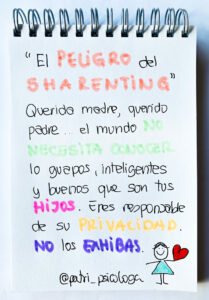 "El PELIGRO del
SHARENTING"
Querida madre, querido
padre... el mundo NO
NECESITA CONOCER
lo guapos, inteligentes
y buenos que son tus
HIJOS. Eres responsable
de su PRIVACIDAD.
NO los EXHIBAS.
@patri_psicologa